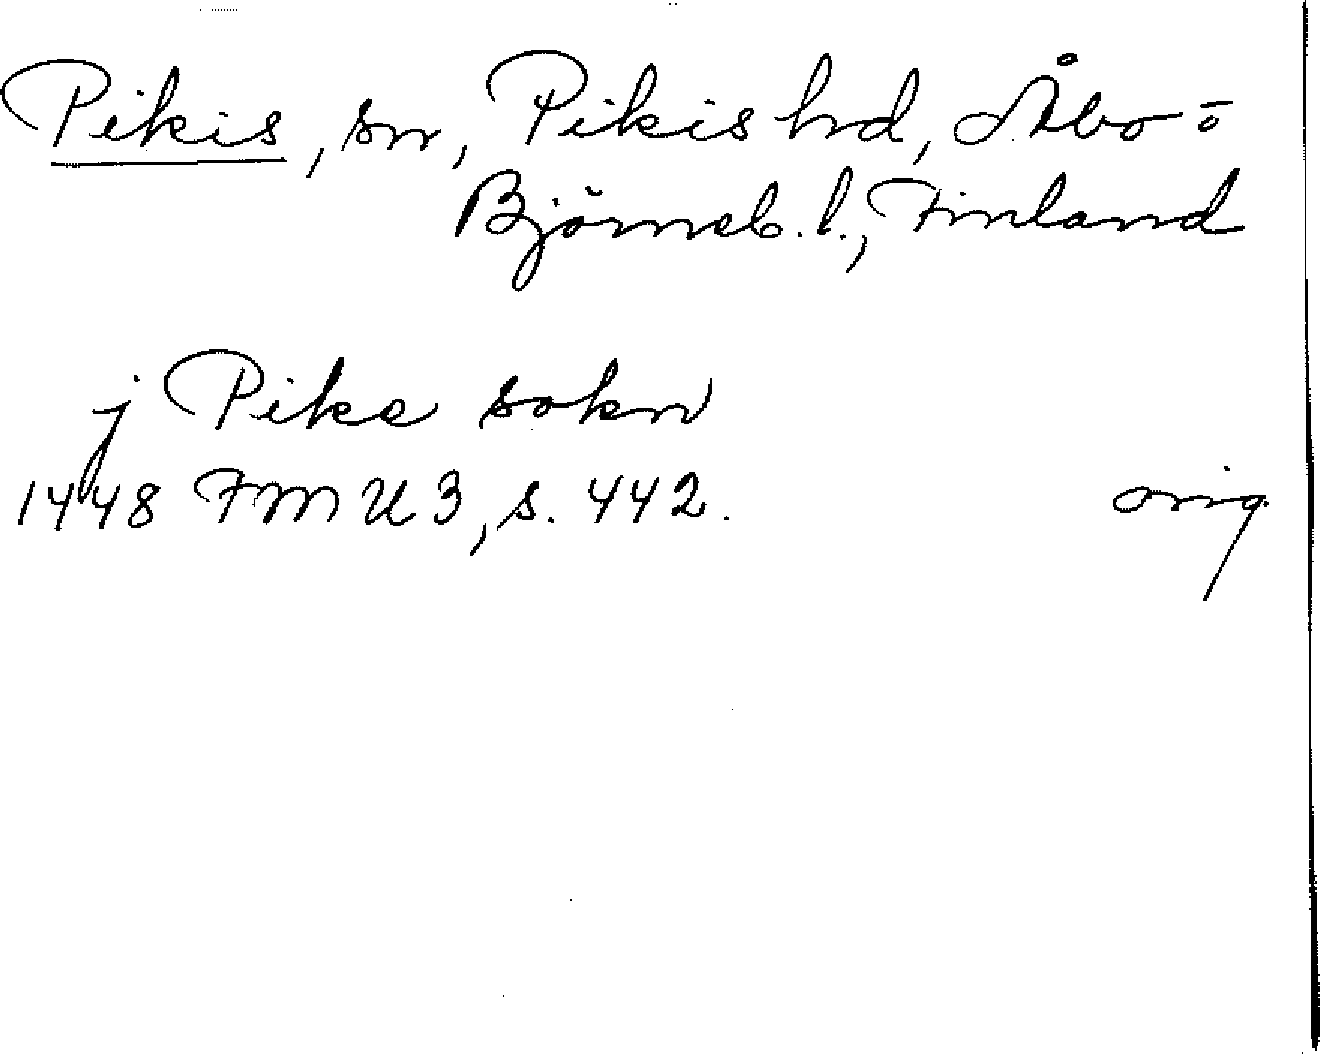 Pikis, sn, Pikis hd, Åbo- o
Björneb. l., Finland
j Pike sokn
1448 FMU 3, s. 442. orig.